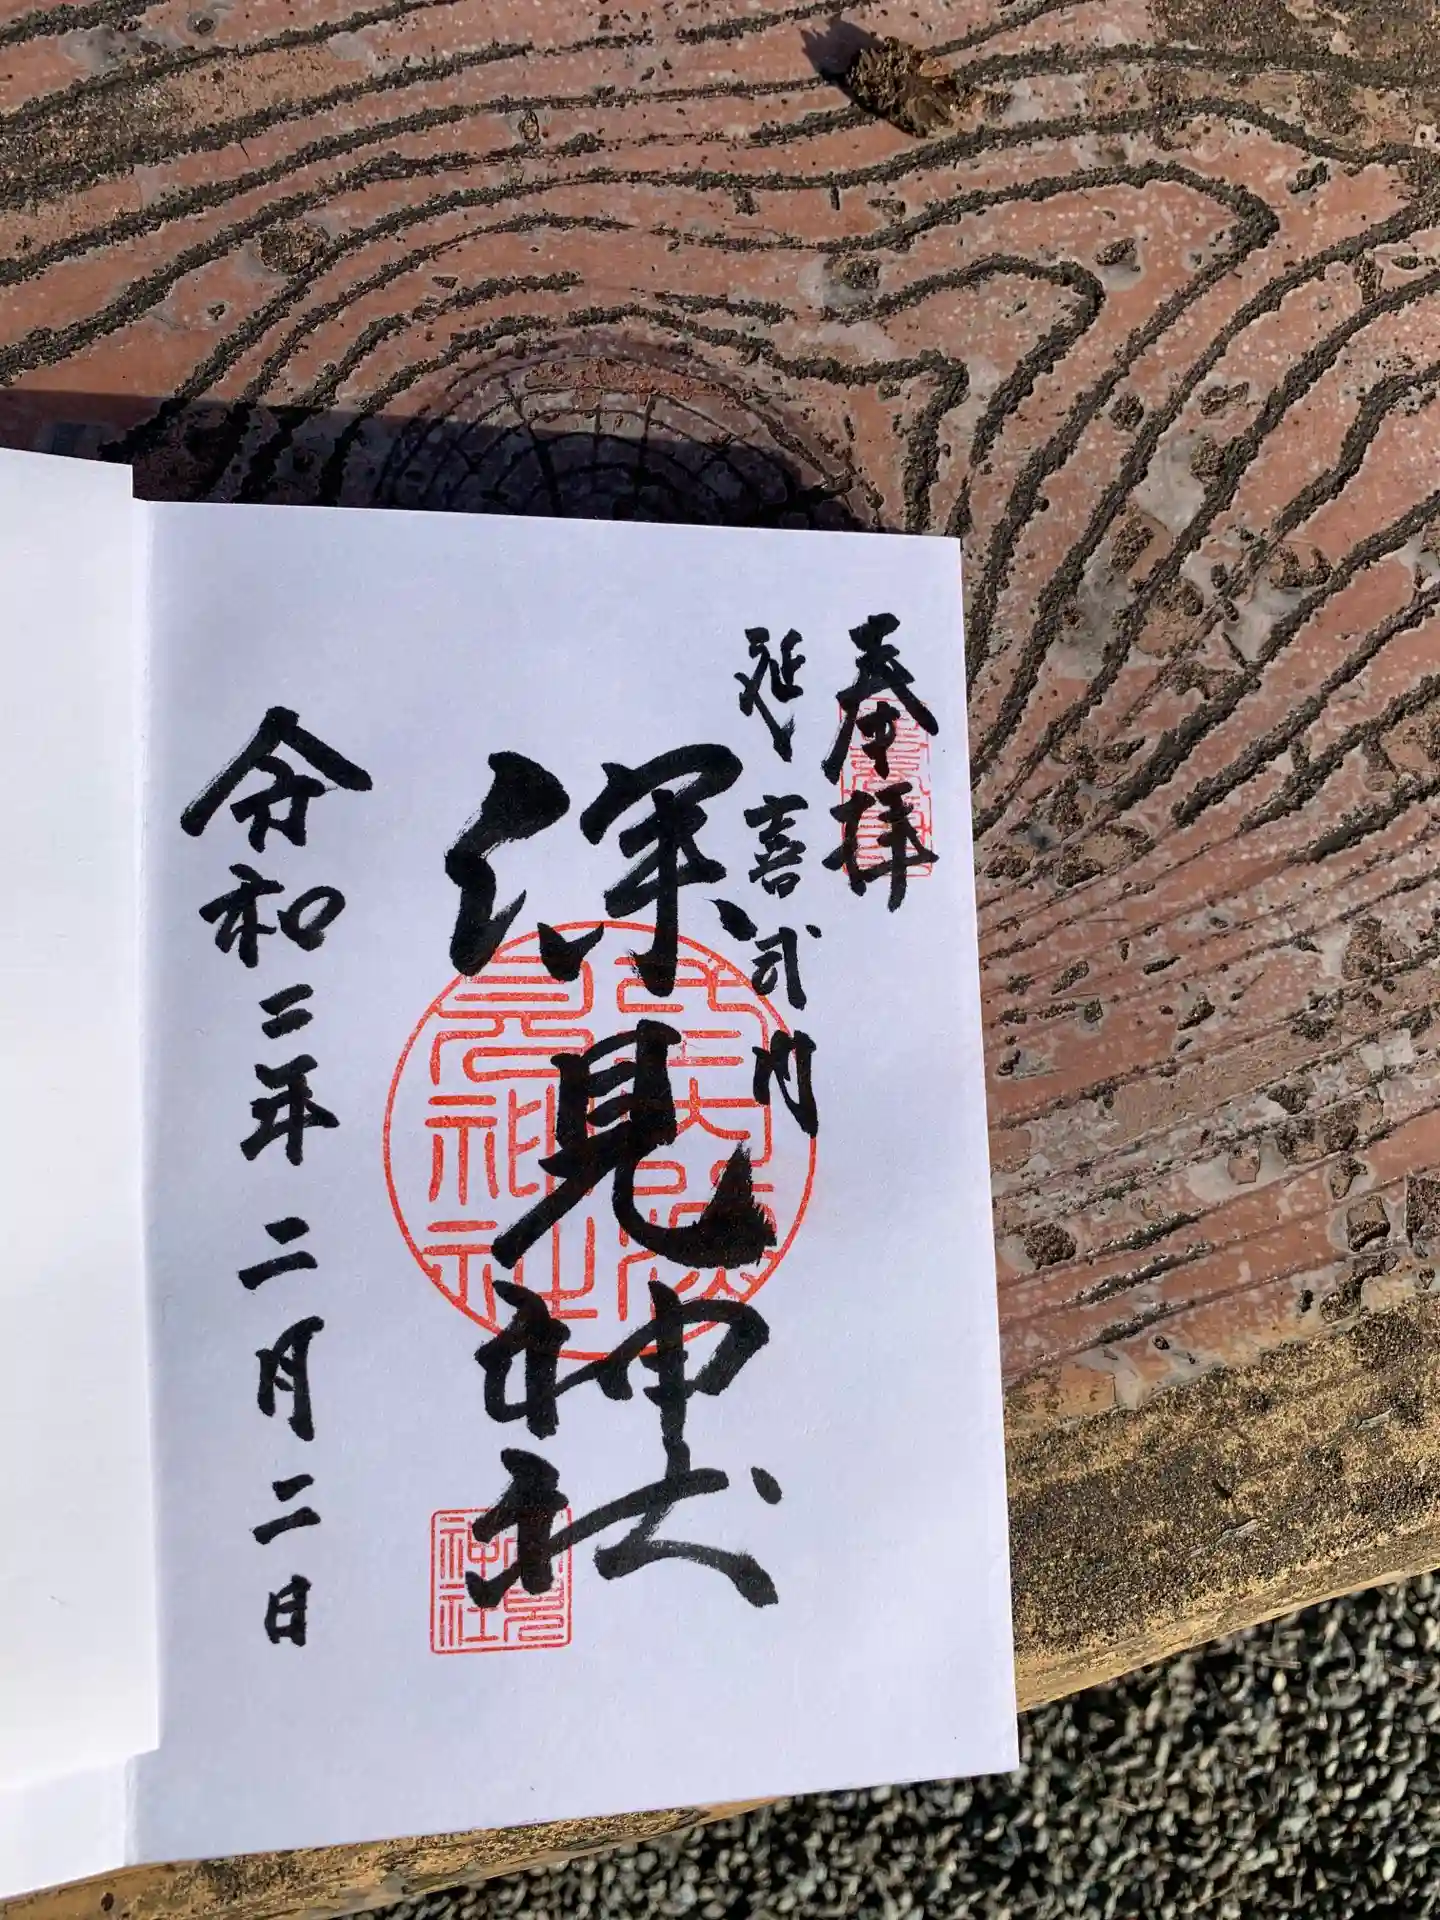 奉拝
延喜式内
深見神社
令和二年二月二日